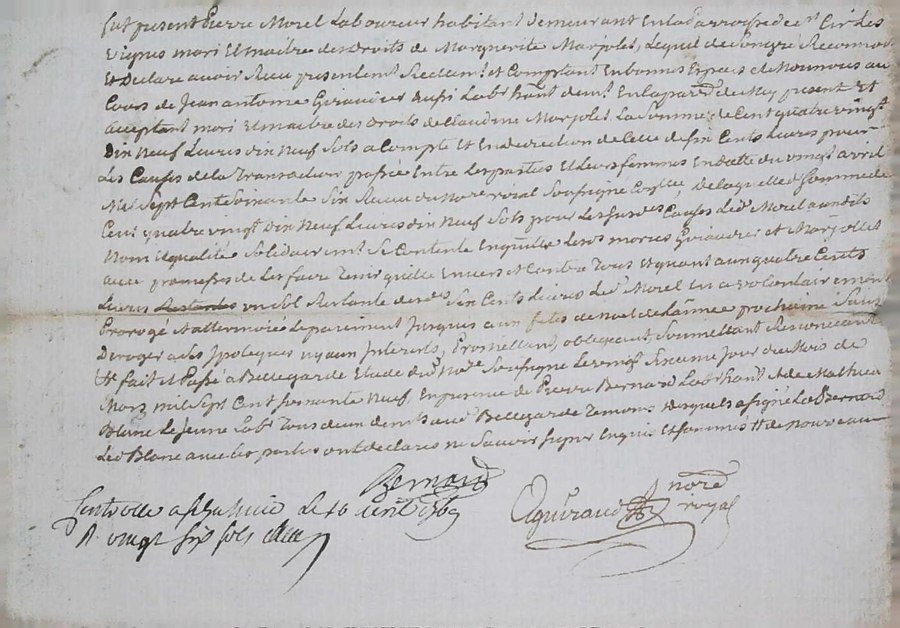 fut present Pierre Morel Laboureur habitant demeurant En la parroisse de st Cir Les
Vignes mari Et maitre des droits de Marguerite Marjolet, Lequel de Son gre Reconnoit
Et Declare avoir Receu presentem.t Reelem.t et Comptant En bonnes Especes de Nou nous au
Cours de Jean antoine Giraudier aussi Lab.r ha.nt dem.t En la par.sse de present Et
acceptant mari Et maitre des droits de Claudine Marjolet La Somme de Cent quatre vingt
Dix Neuf Livres dix Neuf Sols a Compte Et En deduction de Celle de Six Cents Livres pour
Les Causes de la Transaction passée Entre Les parties Et Leurs femmes En datte du vingt avril
Mil Sept Cent Soixante Six Receue du No.re roial Soussigné De laquelle d. Somme de
Cent quatre vingt Dix Neuf Livres dix Neuf Sols pour Les Causes Led. Morel auxdits
Nom Et qualité Se Contente En quitte Lesd. mariés Giraudier et Marjollet
avec promesses de Les faire Tenir quitte Envers et Contre Tous Et quant aux quatre Cents
Livres un Sol Restante desd. Six Cents Livres Led. Morel En a volontairement
Prorogé Et attermoié Le paiement Jusques aux fetes de noel de Lannée prochaine Sans
Deroger a Ses Ipoteques ny aux Interets, Promettant, obligeant, Soumettant Renonceant
fait et Passé a Bellegarde Etude du No.re Soussigné Le vingt Sixieme Jour du Mois de
Mars mil Sept Cent Soixante Neuf En presence de Pierre Bernard Lab.r ha.nt Et de Mathieu
Blanc Le Jeune Lab.r Tous deux dem.ts aud. Bellegarde Temoins Desquels a signé Led. Bernard
Led. Blanc avec les parties ont declaré ne Savoir signer Enquis Et sommés de nouveau
Bernard
Aguiraud nore
royal
Controllé a Le 10 avril 1769
R. vingt six sols